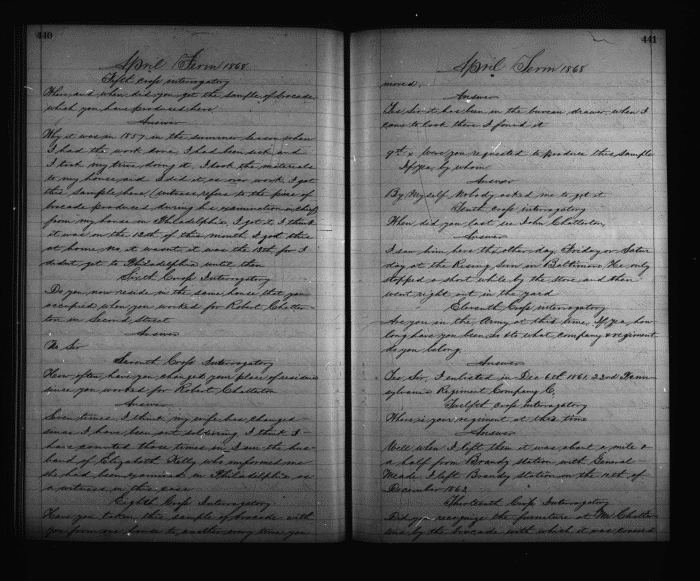 440
April Term 1868
Fifth Cross interrogatory
When and when did you get the sample of brocade
which you have produced here
Answer
Why it was in 1857 in the summer season when
I had the work done, I had been sick and
I took my time doing it, I took the materials
to my house and I did it as was work, I got
this sample here (witness refers to the piece of
brocade produced during his examination in chief)
from my house in Philadelphia, I got it I think
it was on the 12th of this month I got this
at home, no, it wasnt, it was the 13th for I
didnt get to Philadelphia until then
Sixth Cross Interrogatory
Do you now reside in the same house that you
occupied when you worked for Robert Chatter-
ton in Second Street
Answer
No Sir
Seventh Cross Interrogatory
How often have you changed your place of residence
since you worked for Robert Chatterton
Answer
Seven times I think, my wife has changed
since I have been out soldiering I think I
have counted those times in, I am the hus-
band of Elizabeth Kelly who informed me
she had been examined in Philadelphia as
a witness in this case
Eighth Cross Interrogatory
Have you taken this sample of brocade with
you from one house to another every time you
441
April Term 1868
moved.
Answer
Yes Sir it has been in the bureau drawer, when I
came to look there I found it
9th x Were you requested to produce this sample
If yea, by whom
Answer
By Myself, Nobody asked me to get it
Tenth Cross interrogatory
When did you last see John Chatterton,
Answer
I saw him here the other day, Friday or Satur-
day at the Rising Sun in Baltimore, He only
stopped a short while by the store and then
went right out in the yard
Eleventh Cross interrogatory
Are you in the Army at this time, If yea, how
long have you been so & to what company & regiment
do you belong.
Answer
Yes, Sir, I enlisted in Dec 6th 1861, 23rd Penn-
sylvania Regiment Company C,
Twelfth Cross interrogatory
Where is your regiment at this time
Answer
Well when I left them it was about a mile &
a half from Brandy Station with General
Meade I left Brandy Station on the 12th of
December 1863
Thirteenth Cross Interrogatory
Did you recognize the furniture at Mr Chatter-
tons by the brocade with which it was covered